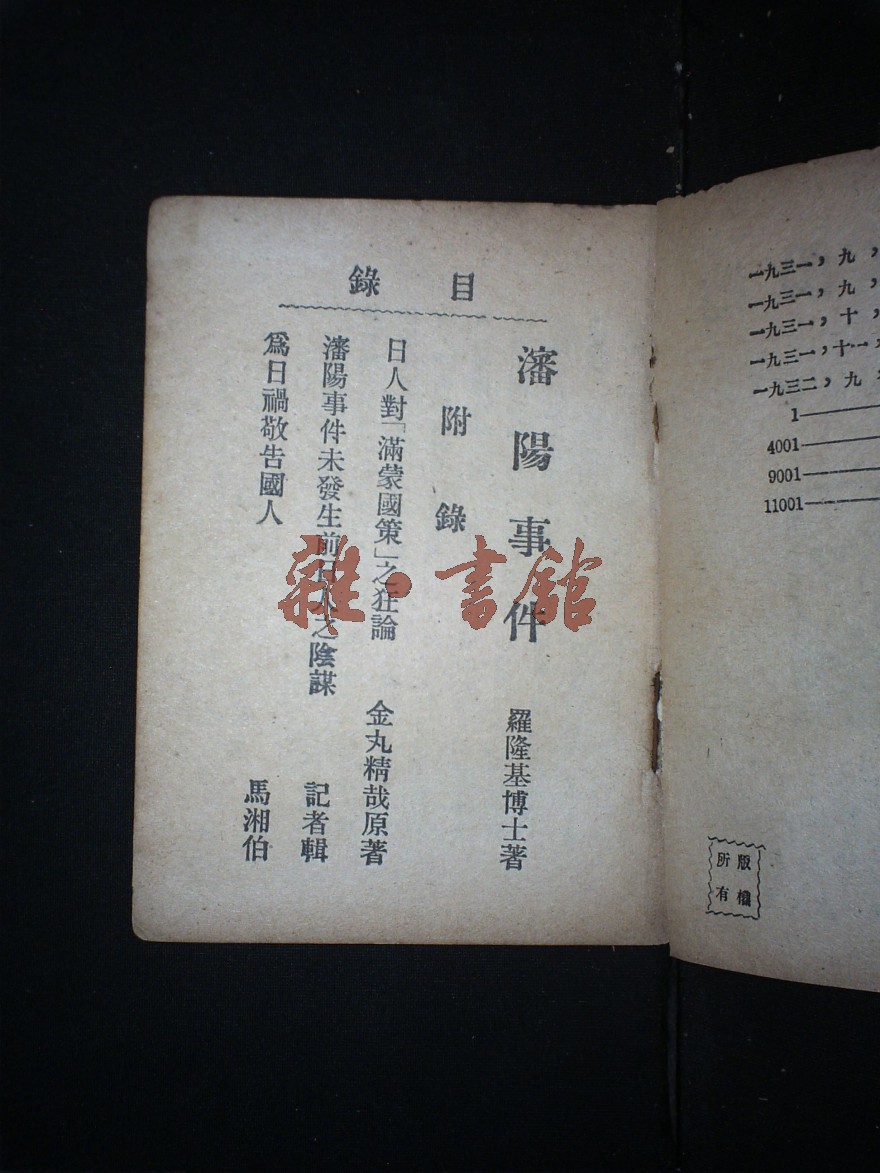 目錄
瀋陽事件 羅隆基博士著
附錄
日人對「滿蒙國策」之狂論 金丸精哉原著
瀋陽事件未發生前日人之陰謀 記者輯
為日禍敬告國人 馬湘伯
雜·書館
一九三一，九，
一九三一，九，
一九三一，十，
一九三一，十一，
一九三二，九
1—
4001—
9001—
11001—
版權所有